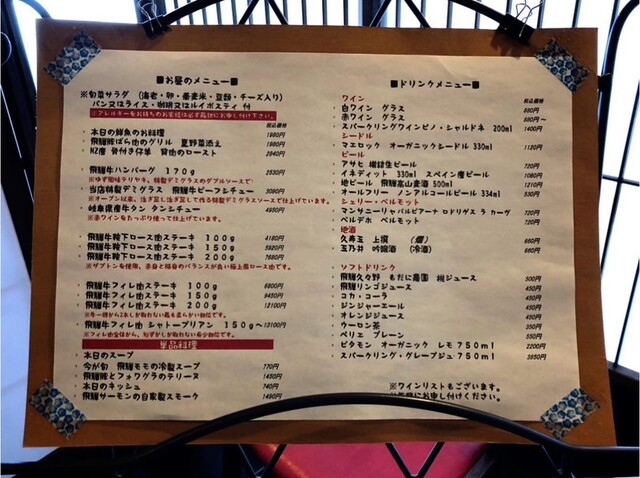 ■お昼のメニュー■
※旬菜サラダ（海老・卵・蕎麦米・豆類・チーズ入り）
パン又はライス・珈琲又はルイボスティ 付
※アレルギーをお持ちのお客様は必ず最初にお申し付け下さい。
税込価格
・本日の鮮魚のお料理 1980円
・飛騨豚ばら肉のグリル 夏野菜添え 1980円
・NZ産 骨付き仔羊 背肉のロースト 2840円
・飛騨牛ハンバーグ １７０ｇ 2530円
※ゆず風味テリヤキ、特製デミグラスのダブルソースで
・当店特製デミグラス 飛騨牛ビーフシチュー 3090円
※オープン以来、注ぎ足し注ぎ足しで作る特製デミグラスソースで仕上げています。
・岐阜県産牛タン タンシチュー 4950円
※赤ワインをたっぷり使って仕上げています。
・飛騨牛ランプ肉ステーキ
・飛騨牛フィレ肉ステーキ １００ｇ 6800円
・飛騨牛フィレ肉ステーキ １５０ｇ 9450円
・飛騨牛フィレ肉ステーキ ２００ｇ 12100円
※牛一頭から2本しか取れない最も柔らかい部位です。
・飛騨牛フィレ肉 シャトーブリアン １５０ｇ～13100円
※フィレ肉全体から、わずかしか取れない希少部位です。
単品料理
・本日のスープ
・今が旬 飛騨モモの冷製スープ 770円
・飛騨豚とフォワグラのテリーヌ 1450円
・本日のキッシュ 740円
・飛騨サーモンの自家製スモーク 1490円
■ドリンクメニュー■
税込価格
ワイン
・白ワイン グラス 680円～
・赤ワイン グラス 680円～
・スパークリングワインピノ・シャルドネ 200ml 1400円
シードル
・マエロック オーガニックシードル 330ml 1120円
ビール
・アサヒ 樽詰生ビール 720円
・イネディット 330ml スペイン産ビール 1080円
・地ビール 飛騨高山麦酒 500ml 1210円
・オールフリー ノンアルコールビール 334ml 530円
シェリー・ベルモット
・マンサニーリャ パルピアーナ ロドリゲス ラ カーヴ 720円
・ベルデホ ベルモット 720円
地酒
・久寿玉 上撰 （燗） 660円
・玉乃井 吟醸酒 （冷酒） 660円
ソフトドリンク
・飛騨久々野 もだに農園 桃ジュース 500円
・飛騨リンゴジュース 450円
・コカ・コーラ 450円
・ジンジャーエール 450円
・オレンジジュース 450円
・ウーロン茶 350円
・ペリエ プレーン 550円
・ピクモン オーガニック レモ ７５０ｍｌ 2200円
・スパークリング・グレープジュ７５０ｍｌ 3850円
※ワインリストもございます。
お気軽にお申し付けください。